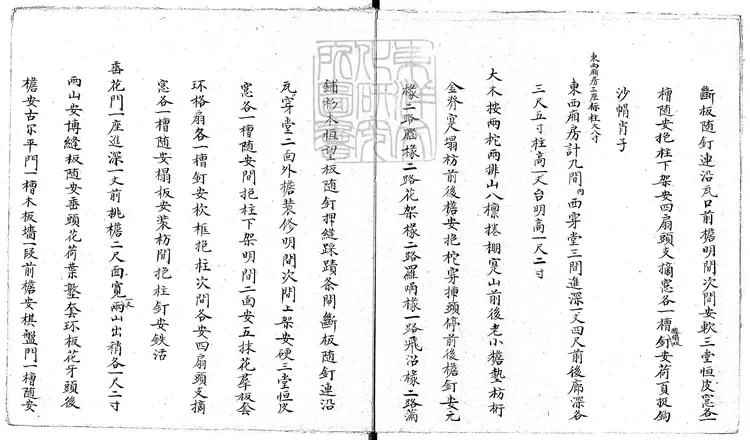 斷板随釘連沿瓦口前檐明間次間安軟三堂恒皮窓各一
檀随安抱柱下架安四扇頭支摘窓各一槽釘安荷頁挺鈎
沙帽肖子
東西廂房二座梅柱尺寸
東西廂房計九間内西穿堂三間進深一丈四尺前後廊深各
三尺五寸柱高一丈台明高一尺二寸
大木按兩柁兩排山八檩捲棚寔山前後老小檐墊枋桁
金脊寔榻枋前後檐安抱柁穿挿頭停前後檐釘安元
椽二路腦椽二路花架椽二路羅鍋椽一路飛沿椽二路滿
鋪杉木恒望板随釘押縫踩蹟条閘斷板随釘連沿
瓦穿堂二面外檐装修明間次間上架安硬三堂恒皮
窓各一檀随安間抱柱下架明間二面安五抹花羣板套
环格扇各一槽釘安枕框抱柱次間各安四扇頭支摘
窓各一槽随安榻板安装枋間抱柱釘安鉄活
垂花門一座進深一丈前挑檐二尺面寛一丈兩山出稍各一尺二寸
兩山安博縫板随安垂頭花荷葉墊套环板花牙頭後
檐安古尔平門一槽木板墻一段前檐安棋盤門一槽随安